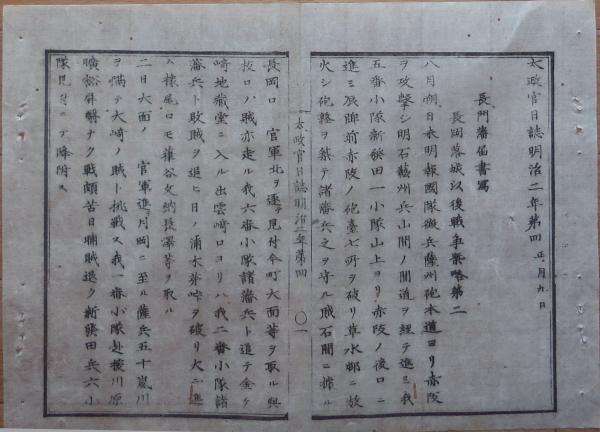 太政官日誌明治二年第四 正月九日
長門藩届書寫
長岡落城以後戰爭畧第二
八月朔日未明報國隊徴兵薩州砲本道ヨリ赤阪
ヲ攻撃シ明石藝州兵山間ノ間道ヲ經テ進ミ我
五番小隊新發田一小隊山上ヨリ赤阪ノ後口ニ
進ミ辰牌前赤阪ノ砲臺七所ヲ破リ草水邨ニ放
火シ砲臺ヲ築テ諸藩兵之ヲ守ル賊石間ニ據ル
太政官日誌明治二年第四 〇一
長岡口 官軍北ヲ逐テ見付今町大面等ヲ取ル與
板口ハ賊亦走ル我六番小隊諸藩兵ト追テ金ケ
崎地藏堂ニ入ル出雲崎口ヨリハ我二番小隊諸
藩兵ト敗賊ヲ追ヒ日ノ浦水峠ヲ破リ大ニ進
ム樣尾口モ 等ヲ取ル
二日大面ノ 官軍進ミ月岡ニ至ル薩兵五十嵐川
ヲ隔テ大崎ノ賊ト挑戰ス我一番小隊赴援川原
曠豁屏蔽ナク戰頗苦日晡賊退ク新發田兵六小
隊見付ニテ降附ス